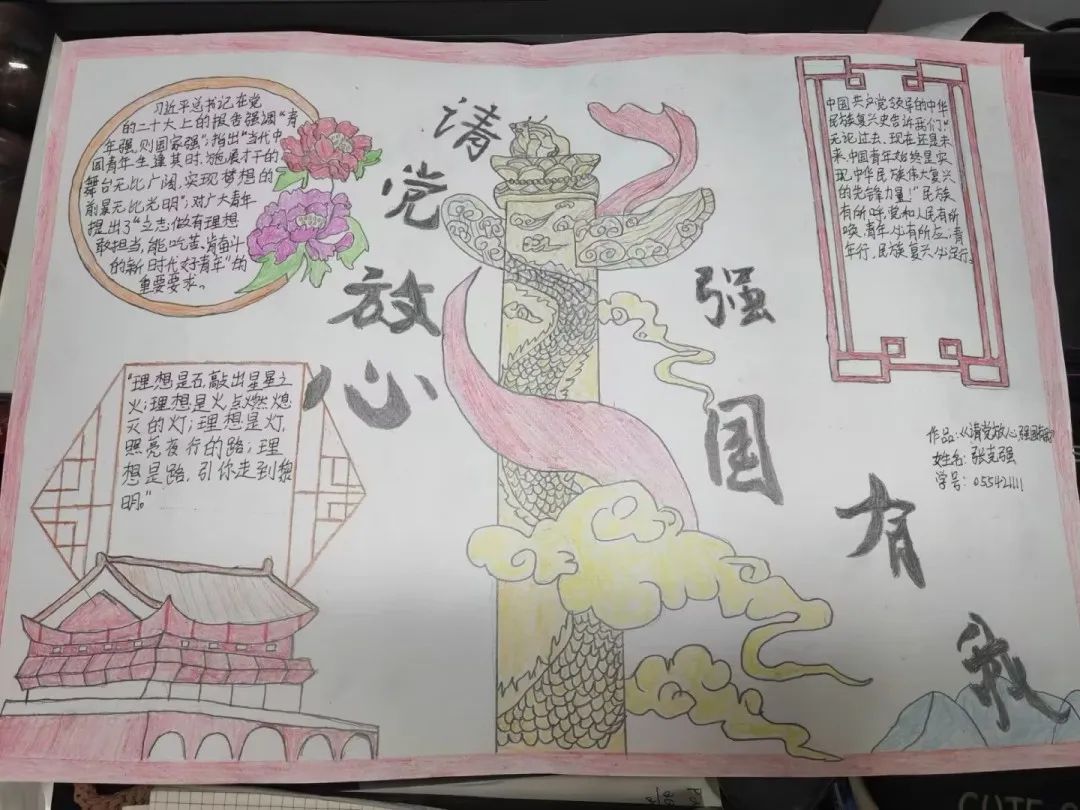 习近平总书记在党
的二十大上的报告强调"青
年强,则国家强",指出"当代中
国青年生逢其时,施展才干的
舞台无比广阔,实现梦想的
前景无比光明",对广大青年
提出了"立志做有理想
敢担当,能吃苦、肯奋斗
的新时代好青年"的
重要要求。
请
党
放
心
强
国
有
我
中国共产党领导的中华
民族复兴史告诉我们"
无论过去、现在还是未
来,中国青年始终是实
现中华民族伟大复兴
的先锋力量!"民族
有所呼,党和人民有所
唤,青年必有所应;青
年行,民族复兴必定行。
"理想是石,敲出星星之
火;理想是火,点燃熄
灭的灯;理想是灯,
照亮夜行的路;理
想是路,引你走到黎
明。"
作品:《请党放心,强国有我》
姓名:张克强
学号:055421111